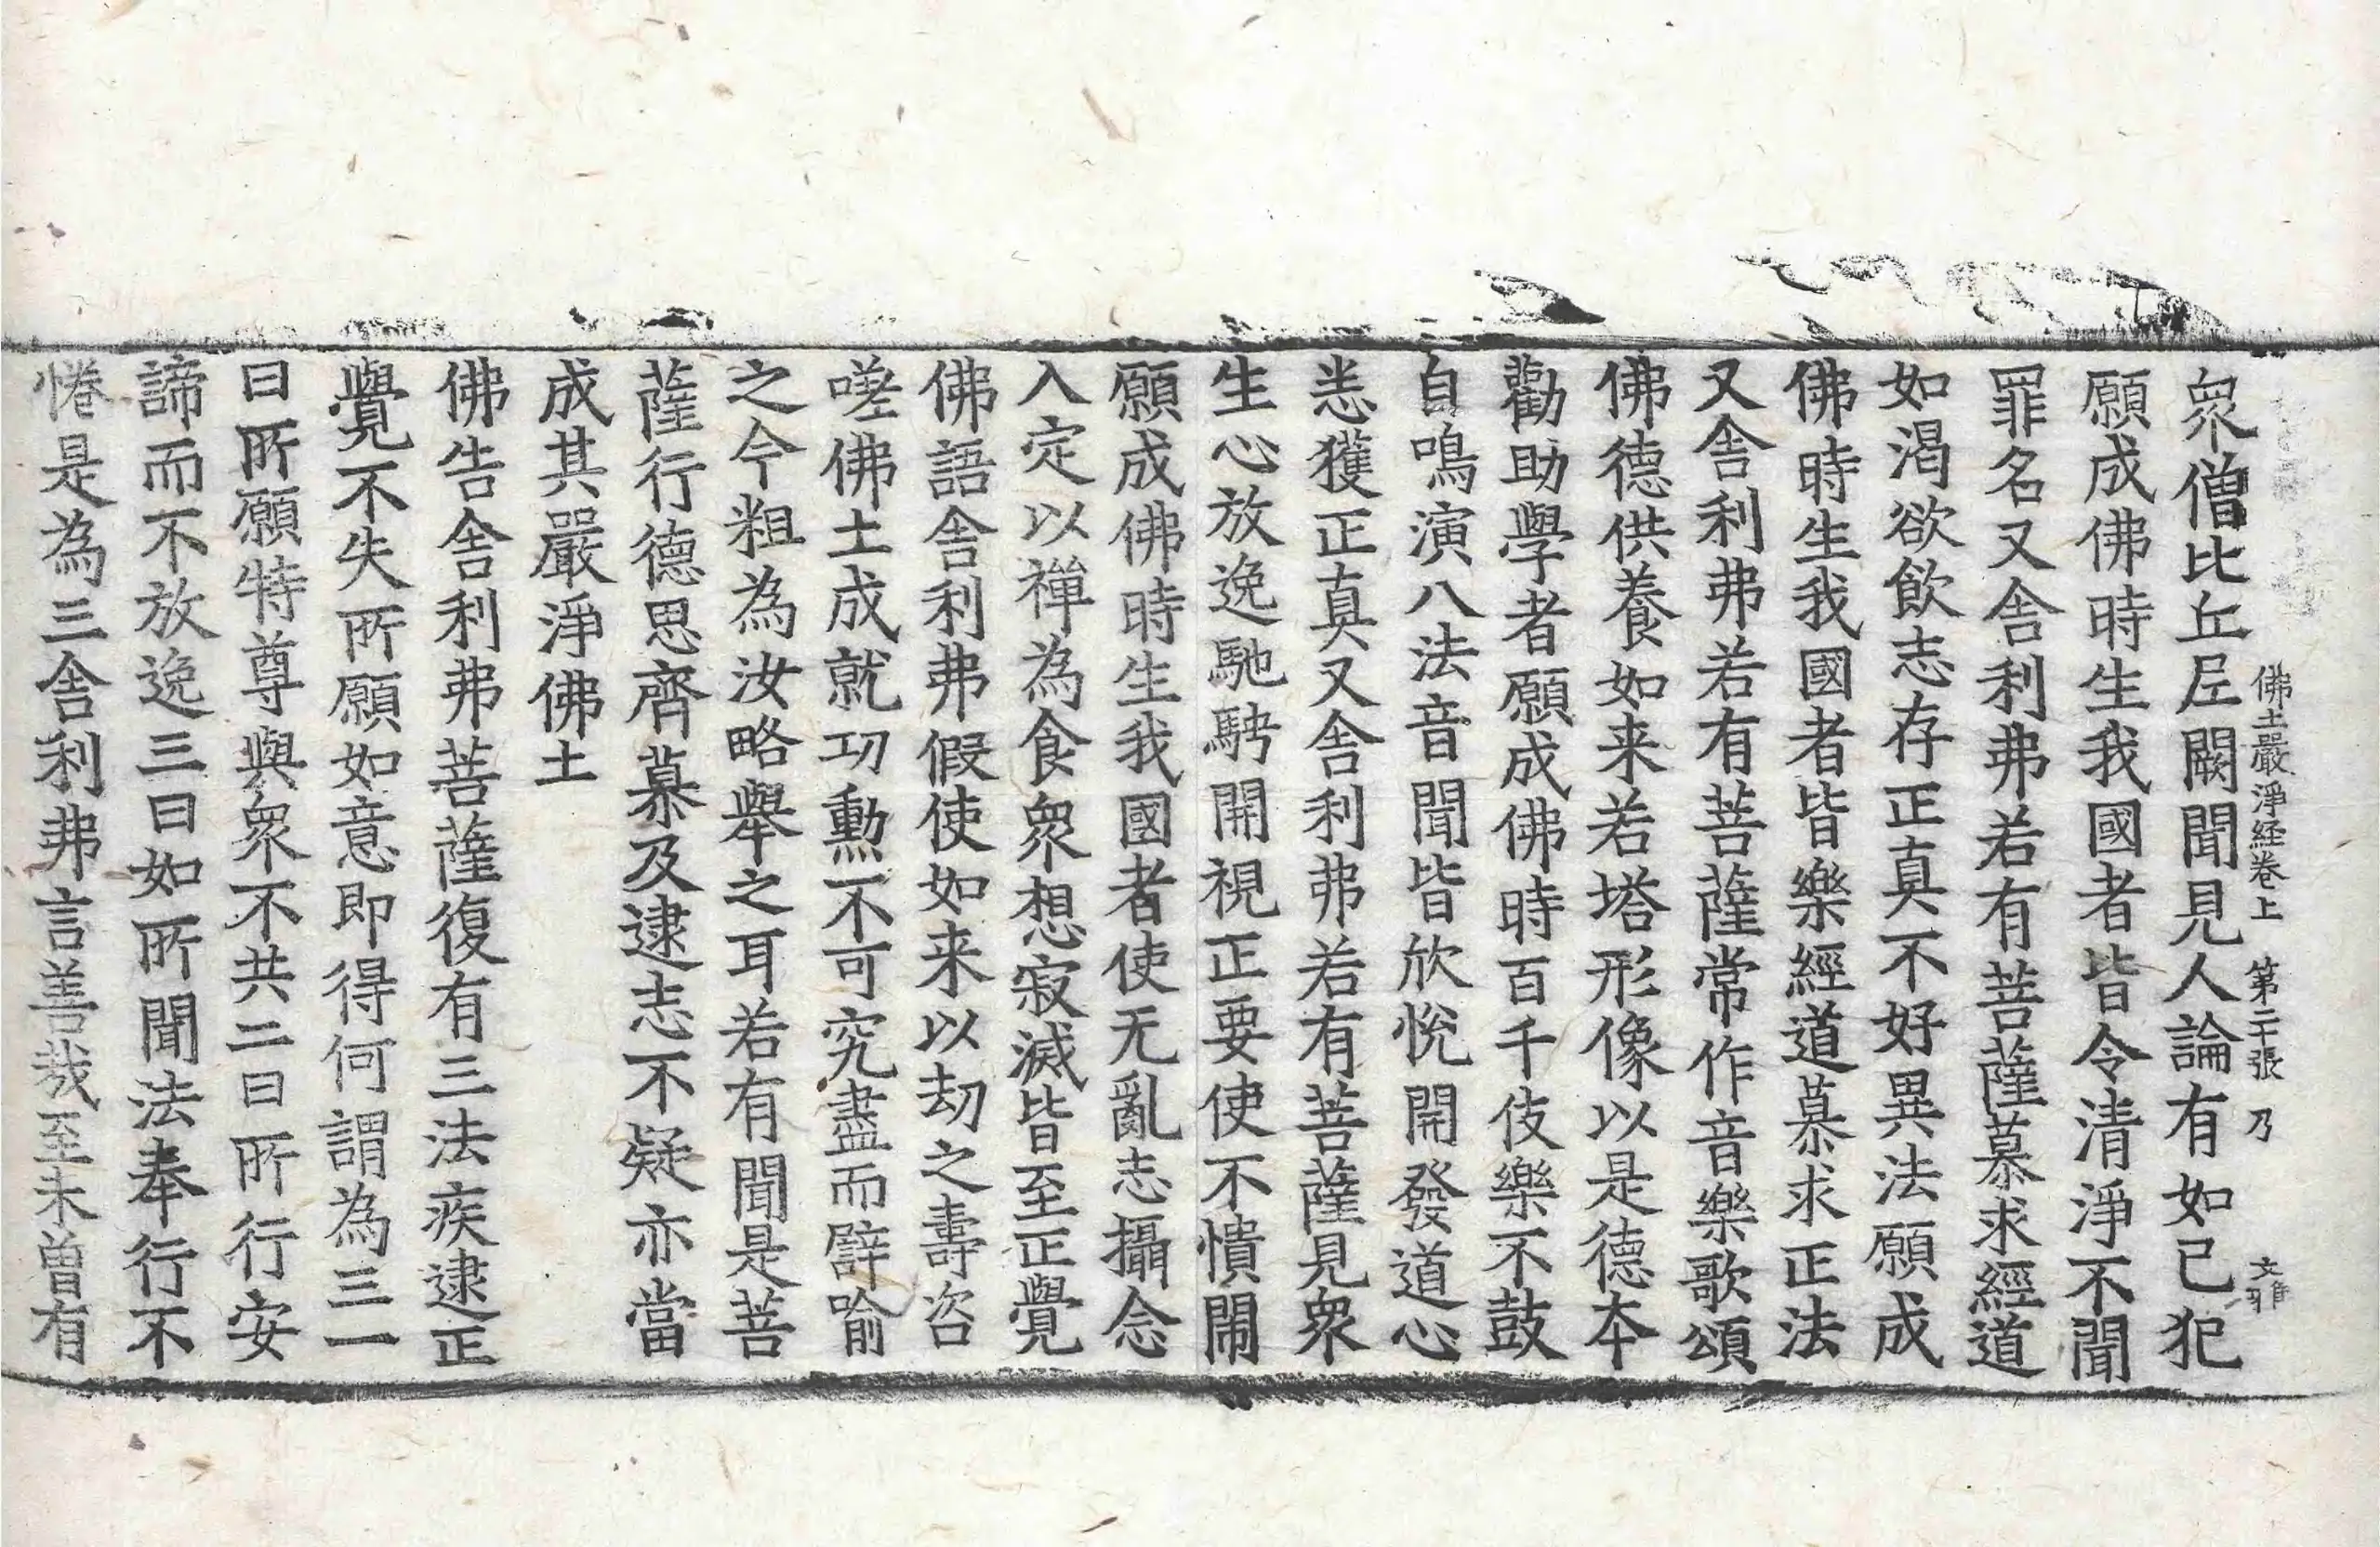 佛土嚴淨経卷上 第二十張 乃 文雅
衆僧比丘尼闕聞見人論有如己犯
願成佛時生我國者皆令清淨不聞
罪名又舎利弗若有菩薩慕求經道
如渴欲飲志存正真不好異法願成
佛時生我國者皆樂經道慕求正法
又舎利弗若有菩薩常作音樂歌頌
佛德供養如来若塔形像以是德本
勸助學者願成佛時百千伎樂不鼓
自鳴演八法音聞皆欣悅開發道心
恙獲正真又舎利弗若有菩薩見衆
生心放逸馳騁開視正要使不憒閙
願成佛時生我國者使无亂志攝念
入定以禪為食衆想寂滅皆至正覺
佛語舎利弗假使如来以劫之壽咨
嗟佛土成就功勳不可究盡而譬喻
之今粗為汝略舉之耳若有聞是菩
薩行德思齊慕及逮志不疑亦當
成其嚴淨佛土
佛告舎利弗菩薩復有三法疾逮正
覺不失所願如意即得何謂為三一
曰所願特尊與衆不共二曰所行安
諦而不放逸三曰如所聞法奉行不
惓是為三舎利弗言善哉至未曽有